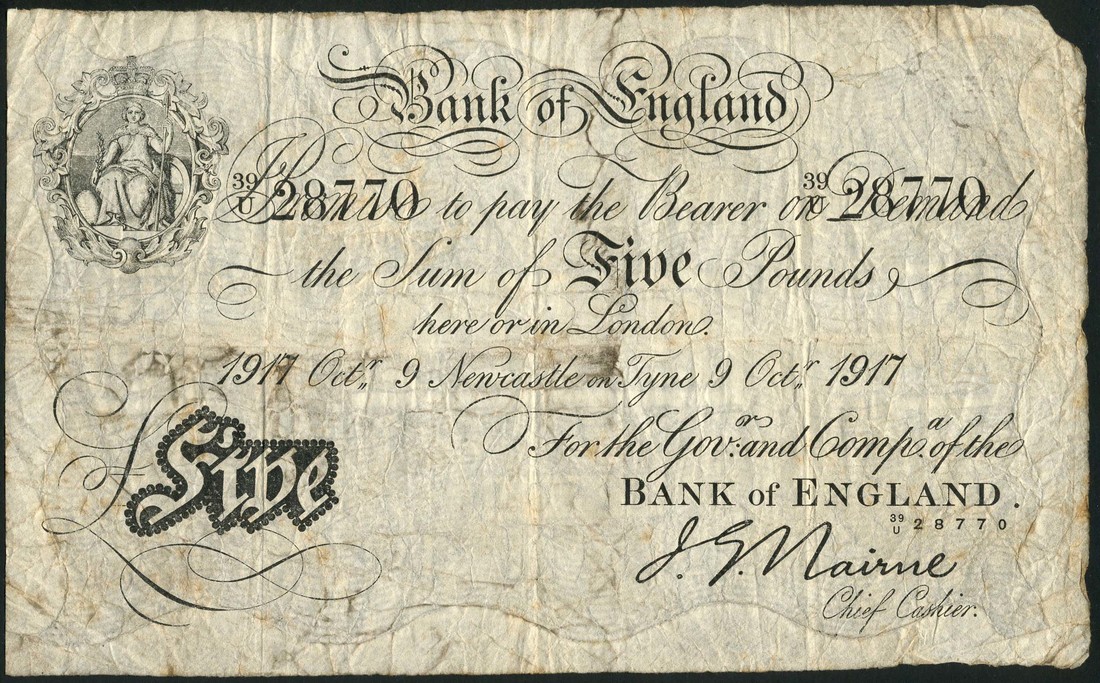 Bank of England
39/U 28770 39/U 28770
I Promise to pay the Bearer on Demand
the Sum of Five Pounds
here or in London.
1917 Octr. 9 Newcastle on Tyne 9 Octr. 1917
For the Govr. and Compa. of the
BANK of ENGLAND.
39/U 28770
£Five
J. G. Nairne
Chief Cashier.